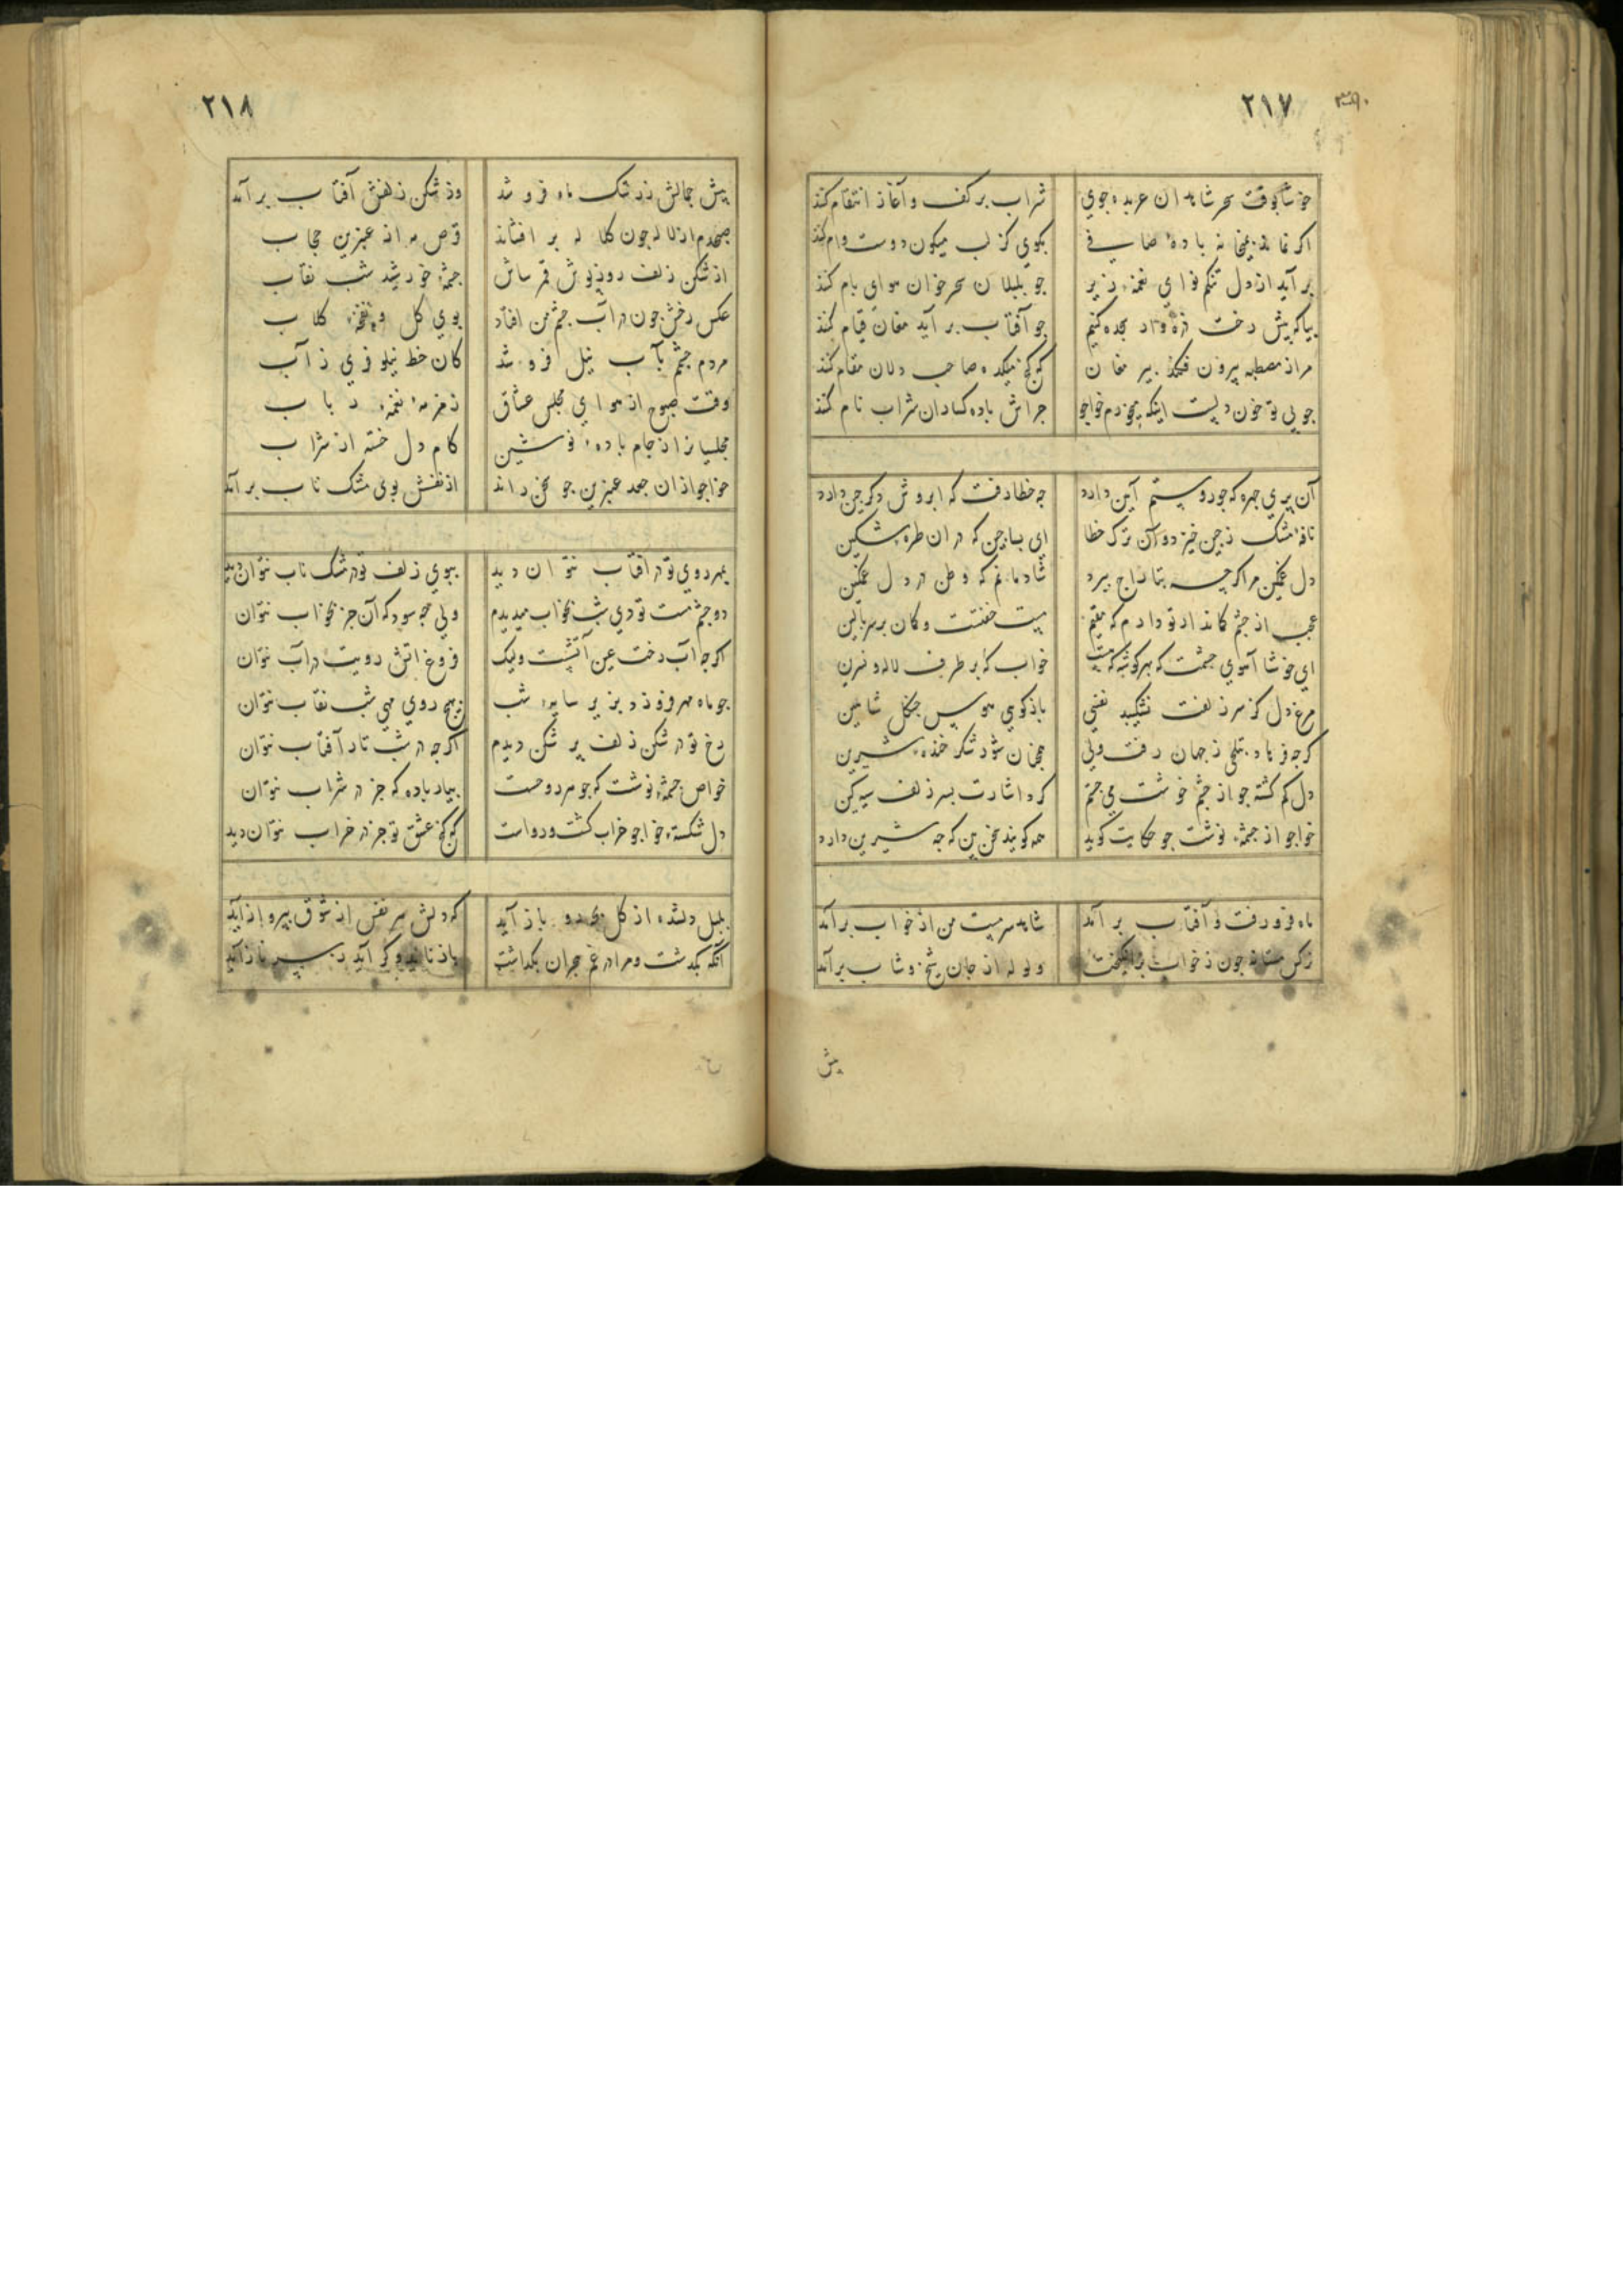 ۲۱۷
خوشا بوقت سحر شاهدان عربده جوی شراب بر کف و آغاز انتقام کنند
اکر نماند بمیخانه بادهٔ صافی بکوی کز لب میکون دوست وام کنند
بر آید از دل تنکم نوای نغمهٔ زیر جو بلبلان سحر خوان هوای بام کنند
بیا که پیش رخت ذره وار سجده کنیم جو آفتاب بر آید مغان قیام کنند
مرا ز مصطبه بیرون فکند پیر مغان که کنج میکده صاحب دلان مقام کنند
جو بی تو خون دلست اینکه میخورم خواجو جراش باده کساران شراب نام کنند
آن بری جهره که جور و ستم آیین دارد جه خطا رفت که ابروش دکر جین دارد
نافهٔ مشک ز جین خیزد و آن ترک خطا ای بسا جین که در ان طره مشکین
دل غمکین مرا کرجه بتاراج ببرد شادمانم که وطن در دل غمکین
عجب از جشم کماندار تو دارم که مقیم مست خفتست و کمان بر سر بالین
ای خوشا آهوی جشمت که بهر کوشه که هست خوابکه بر طرف لاله و نسرین
مرغ دل کز سر زلفت نشکیبد نفسی باز کوی هوس جنکل شاهین
کرجه فرهاد بتلخی ز جهان رفت ولی همجنان شور شکر خنده شیرین
دل کم کشته جو از جشم خوشت می جستم کرد اشارت بسر زلف سیه کین
خواجو از جشمه نوشت جو حکایت کوید همه کویند سخن بین که جه شیرین دارد
ماه فرو رفت و آفتاب بر آمد شاهد سرمست من از خواب برآمد
نرکس مستانه جون ز خواب برانکیخت ولوله از جان شیخ و شاب برآمد
پیش
۲۱۸
پیش جمالش ز رشک ماه فرو شد وز شکن زلفش آفتاب بر آمد
صبحدم از لاله جون کلاله بر افشاند قرص مه از عنبرین حجاب
از شکن زلف روز پوش قمر ساش جشمهٔ خورشید شب نقاب
عکس رخش جون در آب جشم من افتاد بوی کل و نفحهٔ کلاب
مردم جشم بآب نیل فرو شد کان خط نیلوفری ز آب
وقت صبوح از هوای مجلس عشاق زمزمهٔ نغمهٔ رباب
مجلسیانرا ز جام بادهٔ نوشین کام دل خسته از شراب
خواجو از ان جعد عنبرین جو سخن راند از نفسش بوی مشک ناب بر آمد
بمهر روی تو در افتاب نتوان دید ببوی زلف تو در مشک ناب نتوان دید
دو جشم مست تو دی شب بخواب میدیدم ولی جه سود که آن جز بخواب نتوان
اکرجه آب رخت عین آتشست ولیک فروغ اتش رویت در آب نتوان
جو ماه مهر فروز در بزیر سایهٔ شب بهیج روی مهی شب نقاب نتوان
رخ تو در شکن زلف پر شکن دیدم اکرجه در شب تار آفتاب نتوان
خواص جشمهٔ نوشت که جوهر روحست بیار باده که جز در شراب نتوان
دل شکستهٔ خواجو خراب کشت و رواست که کنج عشق تو جز در خراب نتوان دید
بلبل دلشده از کل بجه رو باز آید که دلش هر نفس از شوق بپرواز آید
آنکه بکذشت و مرا در غم هجران بکذاشت باز ناید وکر آید ز سر ناز آید